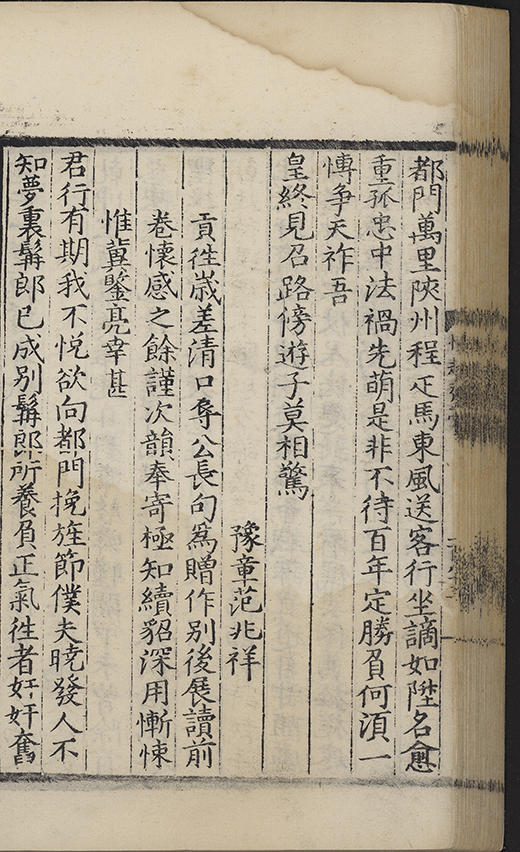 都門萬里陝州程疋馬東風送客行坐謫如陞名愈
重孤忠中法禍先萌是非不待百年定勝負何湏一
慱爭天祚吾
皇終見召路傍遊子莫相驚
豫章范兆祥
貢徃嵗差清口辱公長句爲贈作别後展讀前
卷懷感之餘謹次韻奉寄極知續貂深用慚悚
惟冀鑒亮幸甚
君行有期我不悅欲向都門挽旌節僕夫曉發人不
知夢裏髯郎已成别髯郎所養負正氣徃者奸奸奮